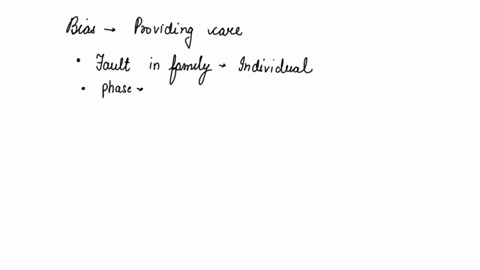 Bias → Providing care
• Fault in family → Individual
• phase →